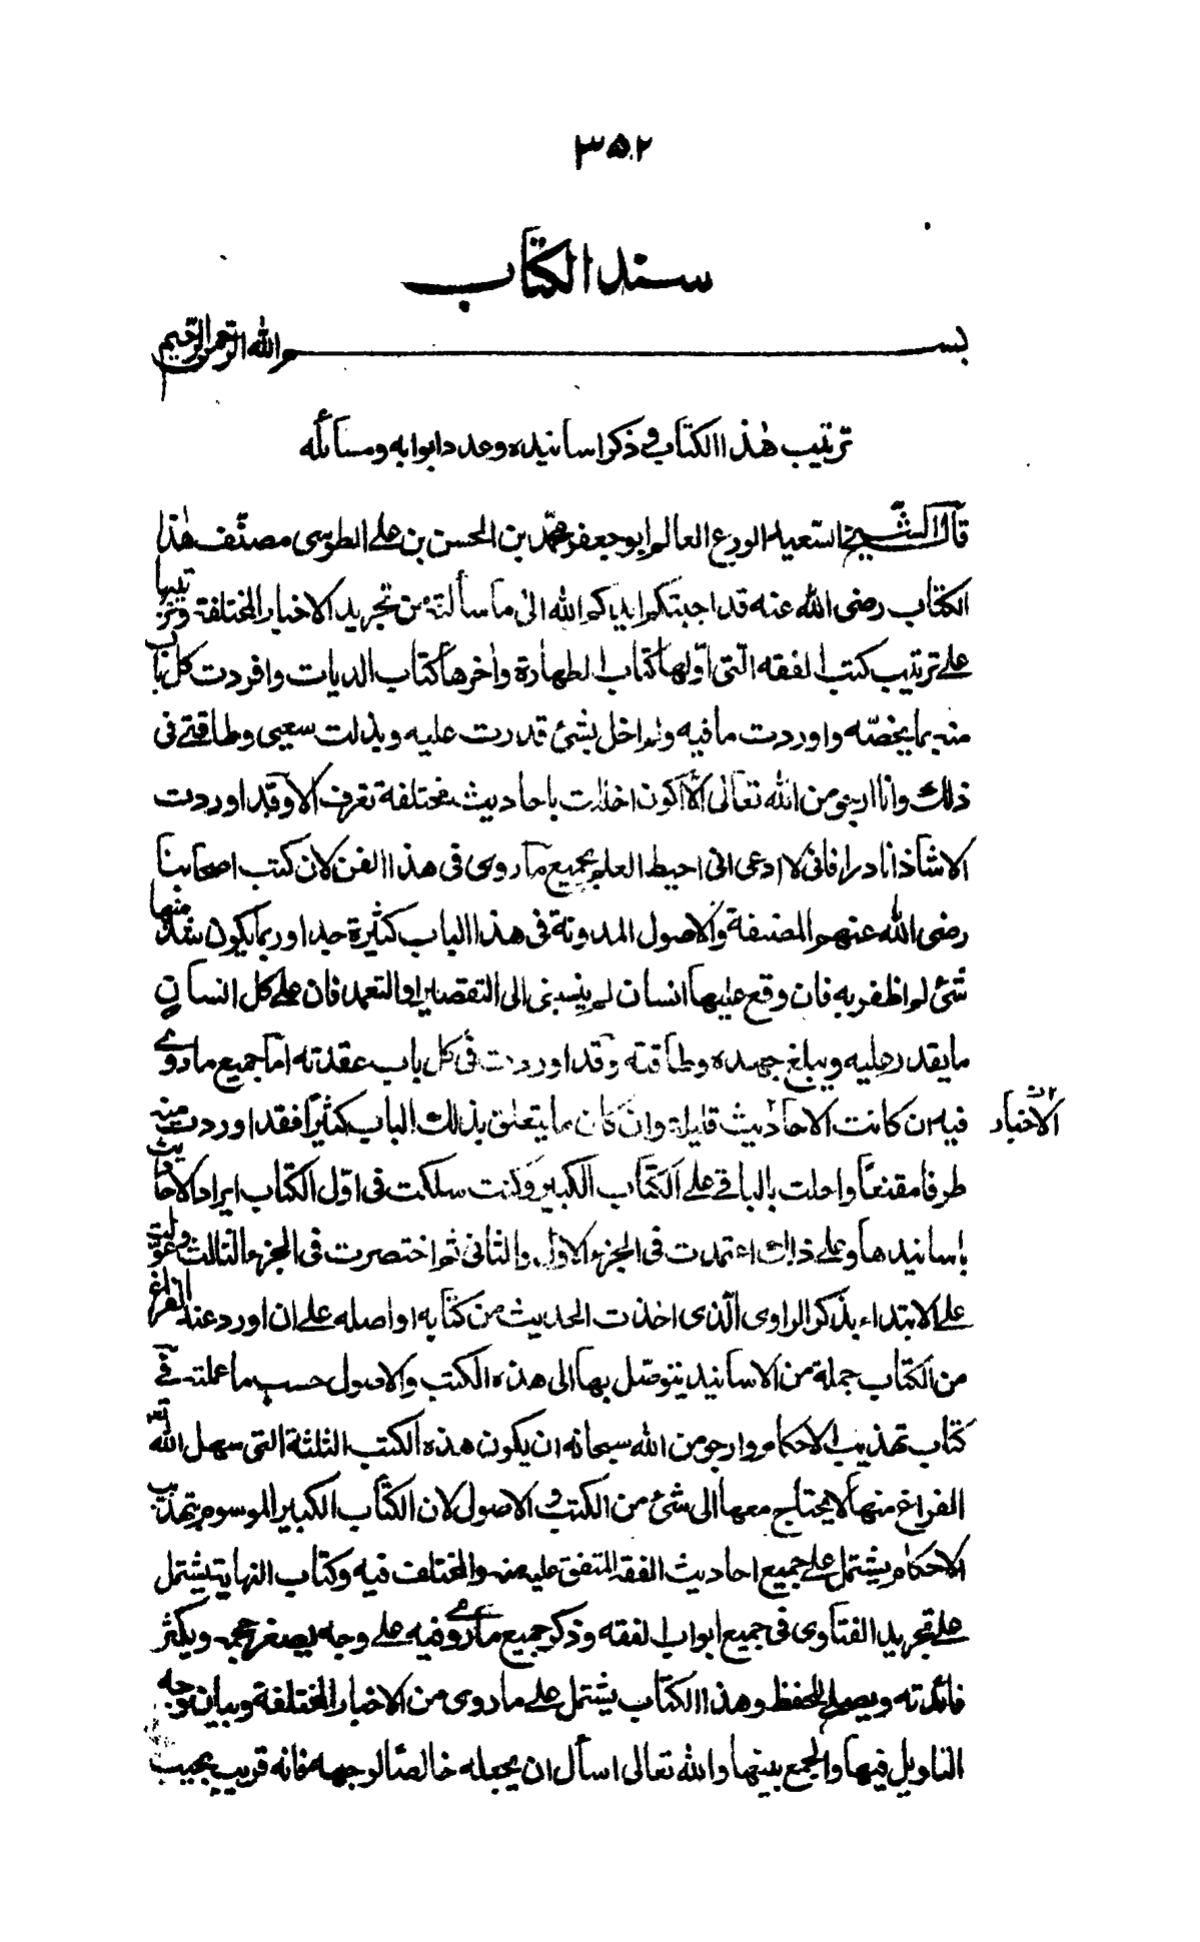 ٣٥٢
سند الكتاب
بسم الله الرحمن الرحيم
ترتيب هذا الكتاب في ذكر اسانيده وعدد ابوابه ومسائله
قال الشيخ السعيد الورع العالم ابو جعفر محمد بن الحسن بن علي الطوسى مصنف هذا
الكتاب رضى الله عنه قد اجبتكم ايدكم الله الى ما سألتم من تجريد الاخبار المختلفة وترتيبها
على ترتيب كتب الفقه التى اولها كتاب الطهارة واخرها كتاب الديات وافردت كل باب
منه بما يخصه واوردت ما فيه ولم اخل بشئ قدرت عليه وبذلت سعيى وطاقتى فى
ذلك وانا ارجو من الله تعالى الا اكون اخللت باحاديث مختلفة تعرف الا وقد اوردت
الا شاذا نادرا فانى لا ادعى انى احيط العلم بجميع ما روى فى هذا الفن لان كتب اصحابنا
رضى الله عنهم المصنفة والاصول المدونة فى هذا الباب كثيرة جدا وربما يكون شذ منها
شئ لم اظفر به فان وقع عليها انسان لم ينسبنى الى التقصير او التعمد فان على كل انسان
ما يقدر عليه ويبلغ جهده وطاقته وقد اوردت فى كل باب عقدته اما جميع ما روى
فيه ان كانت الاحاديث قليلة وان كان ما يتعلق بذلك الباب كثيرا فقد اوردت منه
الاخبار
طرفا مقنعا واحلت بالباقى على الكتاب الكبير وكنت سلكت فى اول الكتاب ايراد الاحاديث
باسانيدها وعلى ذلك اعتمدت فى الجزء الاول والثانى ثم اختصرت فى الجزء الثالث وعولت
على الابتداء بذكر الراوى الذى اخذت الحديث من كتابه او اصله على ان اورد عند الفراغ
من الكتاب جملة من الاسانيد يتوصل بها الى هذه الكتب والاصول حسب ما عملته فى
كتاب تهذيب الاحكام وارجو من الله سبحانه ان يكون هذه الكتب الثلثة التى سهل الله
الفراغ منها لا يحتاج معها الى شئ من الكتب والاصول لان الكتاب الكبير الموسوم بتهذيب
الاحكام يشتمل على جميع احاديث الفقه المتفق عليه منه والمختلف فيه وكتاب النهاية يشتمل
على تجريد الفتاوى فى جميع ابواب الفقه وذكر جميع ما روى فيه على وجه يصغر حجمه ويكثر
فائدته ويصلح للحفظ وهذا الكتاب يشتمل على ما روى من الاخبار المختلفة وبيان وجه
التاويل فيها والجمع بينها والله تعالى اسأل ان يجعله خالصا لوجهه فانه قريب مجيب